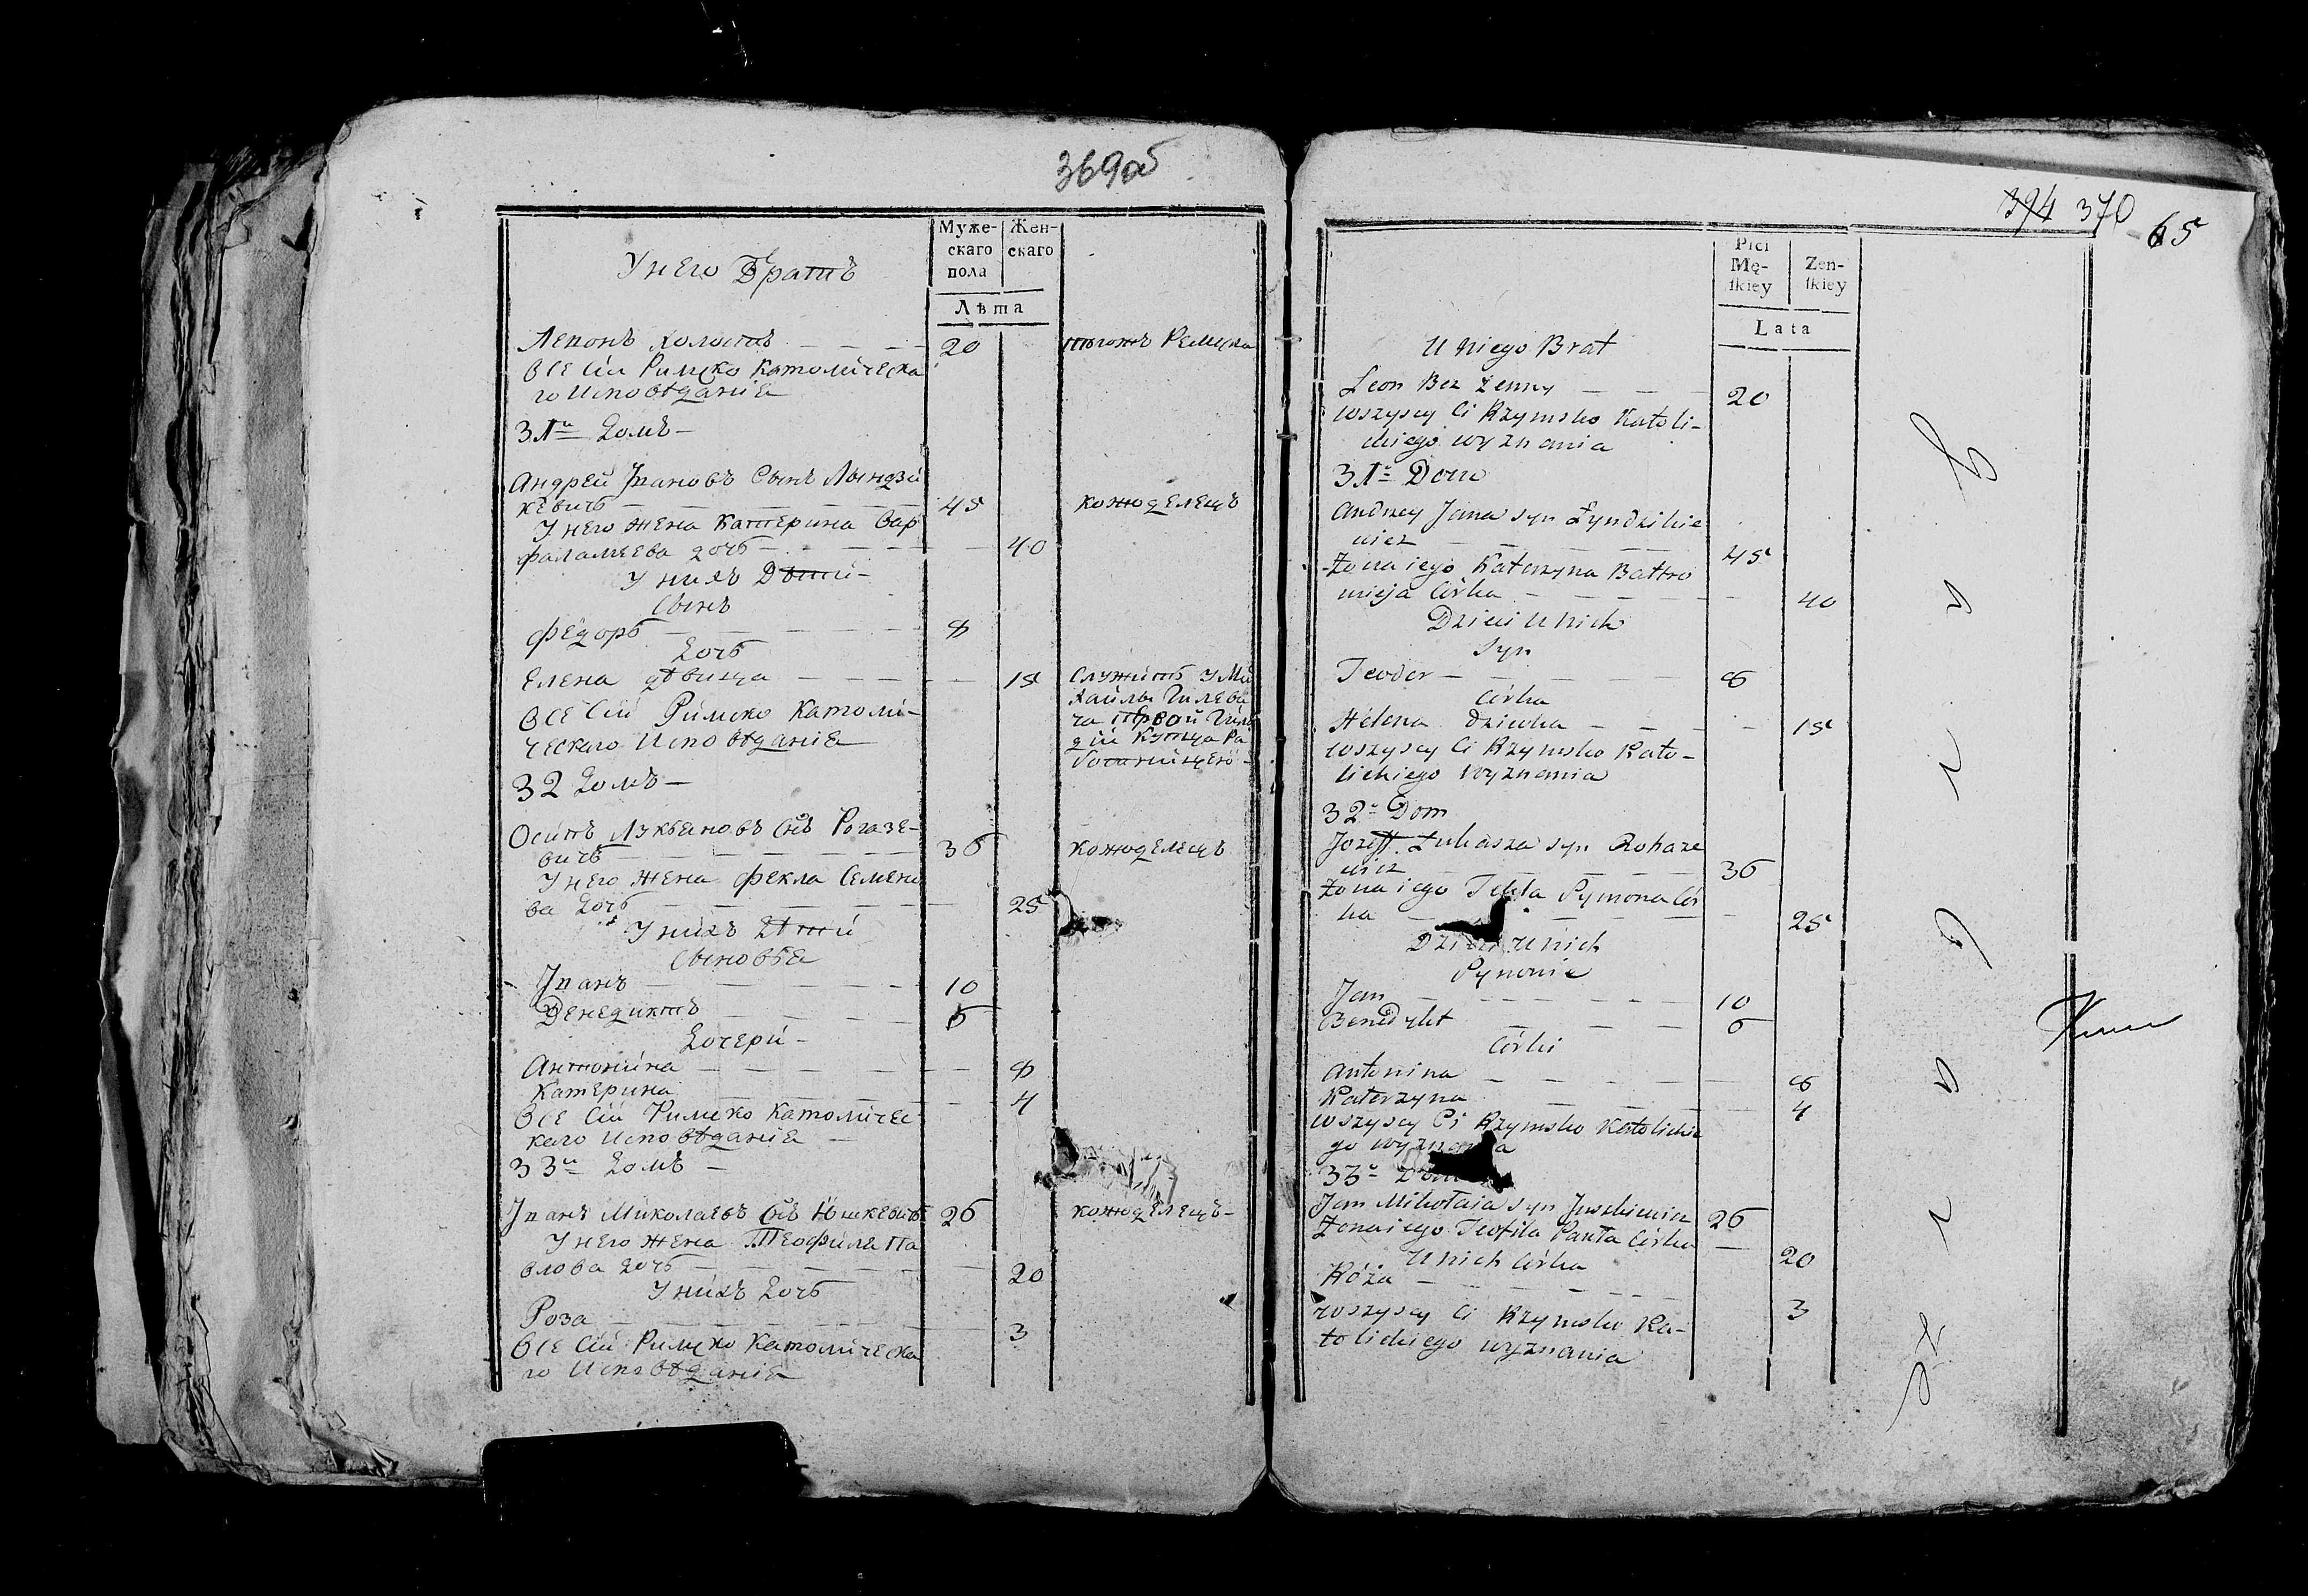 369об
Муже-
скаго
пола
Жен-
скаго
Лѣта
У него Братъ
Леонъ холостъ 20 тогожъ Ремесла
Все Сіи Римско Католическа
го Исповѣданія
31й Домъ
Андрей Івановъ Сынъ Лындзи
кевичь 45 кожюделецъ
У него жена Катерина Вар
фаламеева дочь 40
У нихъ Дѣти
Сынъ
Фёдоръ 8
Дочь
Елена дѣвица 15 Служитъ у Ми
хайлы
Все Сіи Римско Католи-
ческаго Исповѣданія
ча первой Гиль
діи Купца Ра
32 Домъ
Осипъ Лукьяновъ Снъ Рогазе-
вичь 36 кожюделецъ
У него жена Фекла Семено
ва Дочь 25
У нихъ Дѣти
Сыновья
Іванъ 10
Венедиктъ 6
Дочери
Антонина 8
Катерина 4
Все Сіи Римско Католичес
каго Исповѣданія
33й Домъ
Іванъ Миколаевъ Снъ Юшкевичь 26 кожюделецъ
У него жена Теофиля Па
влова дочь 20
У нихъ Дочь
Роза 3
Все Сіи Римско Католическа
го Исповѣданія
394 370
65
Płci
Mę-
ſkiey
Zen-
ſkiey
Lata
U niego Brat
Leon Bez żenny 20
wszyscy Ci Rzymsko Katoli-
ckiego wyznania
31o Dom
Andrzey Jana syn Łyndzikie
wicz 45
Żona iego Katerzyna Bałtro
mieja Córka 40
Dzieci u nich
Syn
Teodor 8
Córka
Helena dziewka 15
wszyscy Ci Rzymsko Kato-
lickiego wyznania
32o Dom
Jozeff Łukasza syn Rohaze
wicz 36
Żona iego Tekla Symona Cór
ka 25
Dzieci u nich
Synowie
Jan 10
Benedykt 6
Córki
Antonina 8
Katerzyna 4
wszyscy Ci Rzymsko Katolickie
go wyznania
33o Dom
Jan Mikołaia syn Juszkiewicz 26
Żona iego Teofila Pawła Córka 20
U nich Córka
Róża 3
wszyscy Ci Rzymsko Ka-
tolickiego wyznania